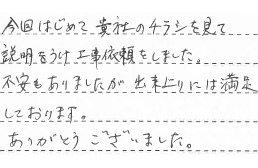 今回はじめて貴社のチラシを見て
説明をうけ工事依頼をしました。
不安もありましたが出来上りには満足
しております。
ありがとうございました。